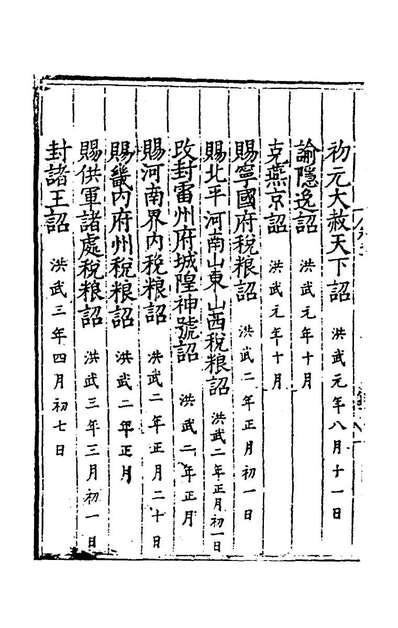 初元大赦天下詔 洪武元年八月十一日
諭隱逸詔 洪武元年十月
克燕京詔 洪武元年十月
賜寧國府稅粮詔 洪武二年正月初一日
賜北平河南山東山西稅粮詔 洪武二年正月初一日
改封雷州府城隍神號詔 洪武二年正月
賜河南界內稅粮詔 洪武二年正月二十日
賜畿內府州稅粮詔 洪武二年正月
賜供軍諸處稅粮詔 洪武三年三月初一日
封諸王詔 洪武三年四月初七日